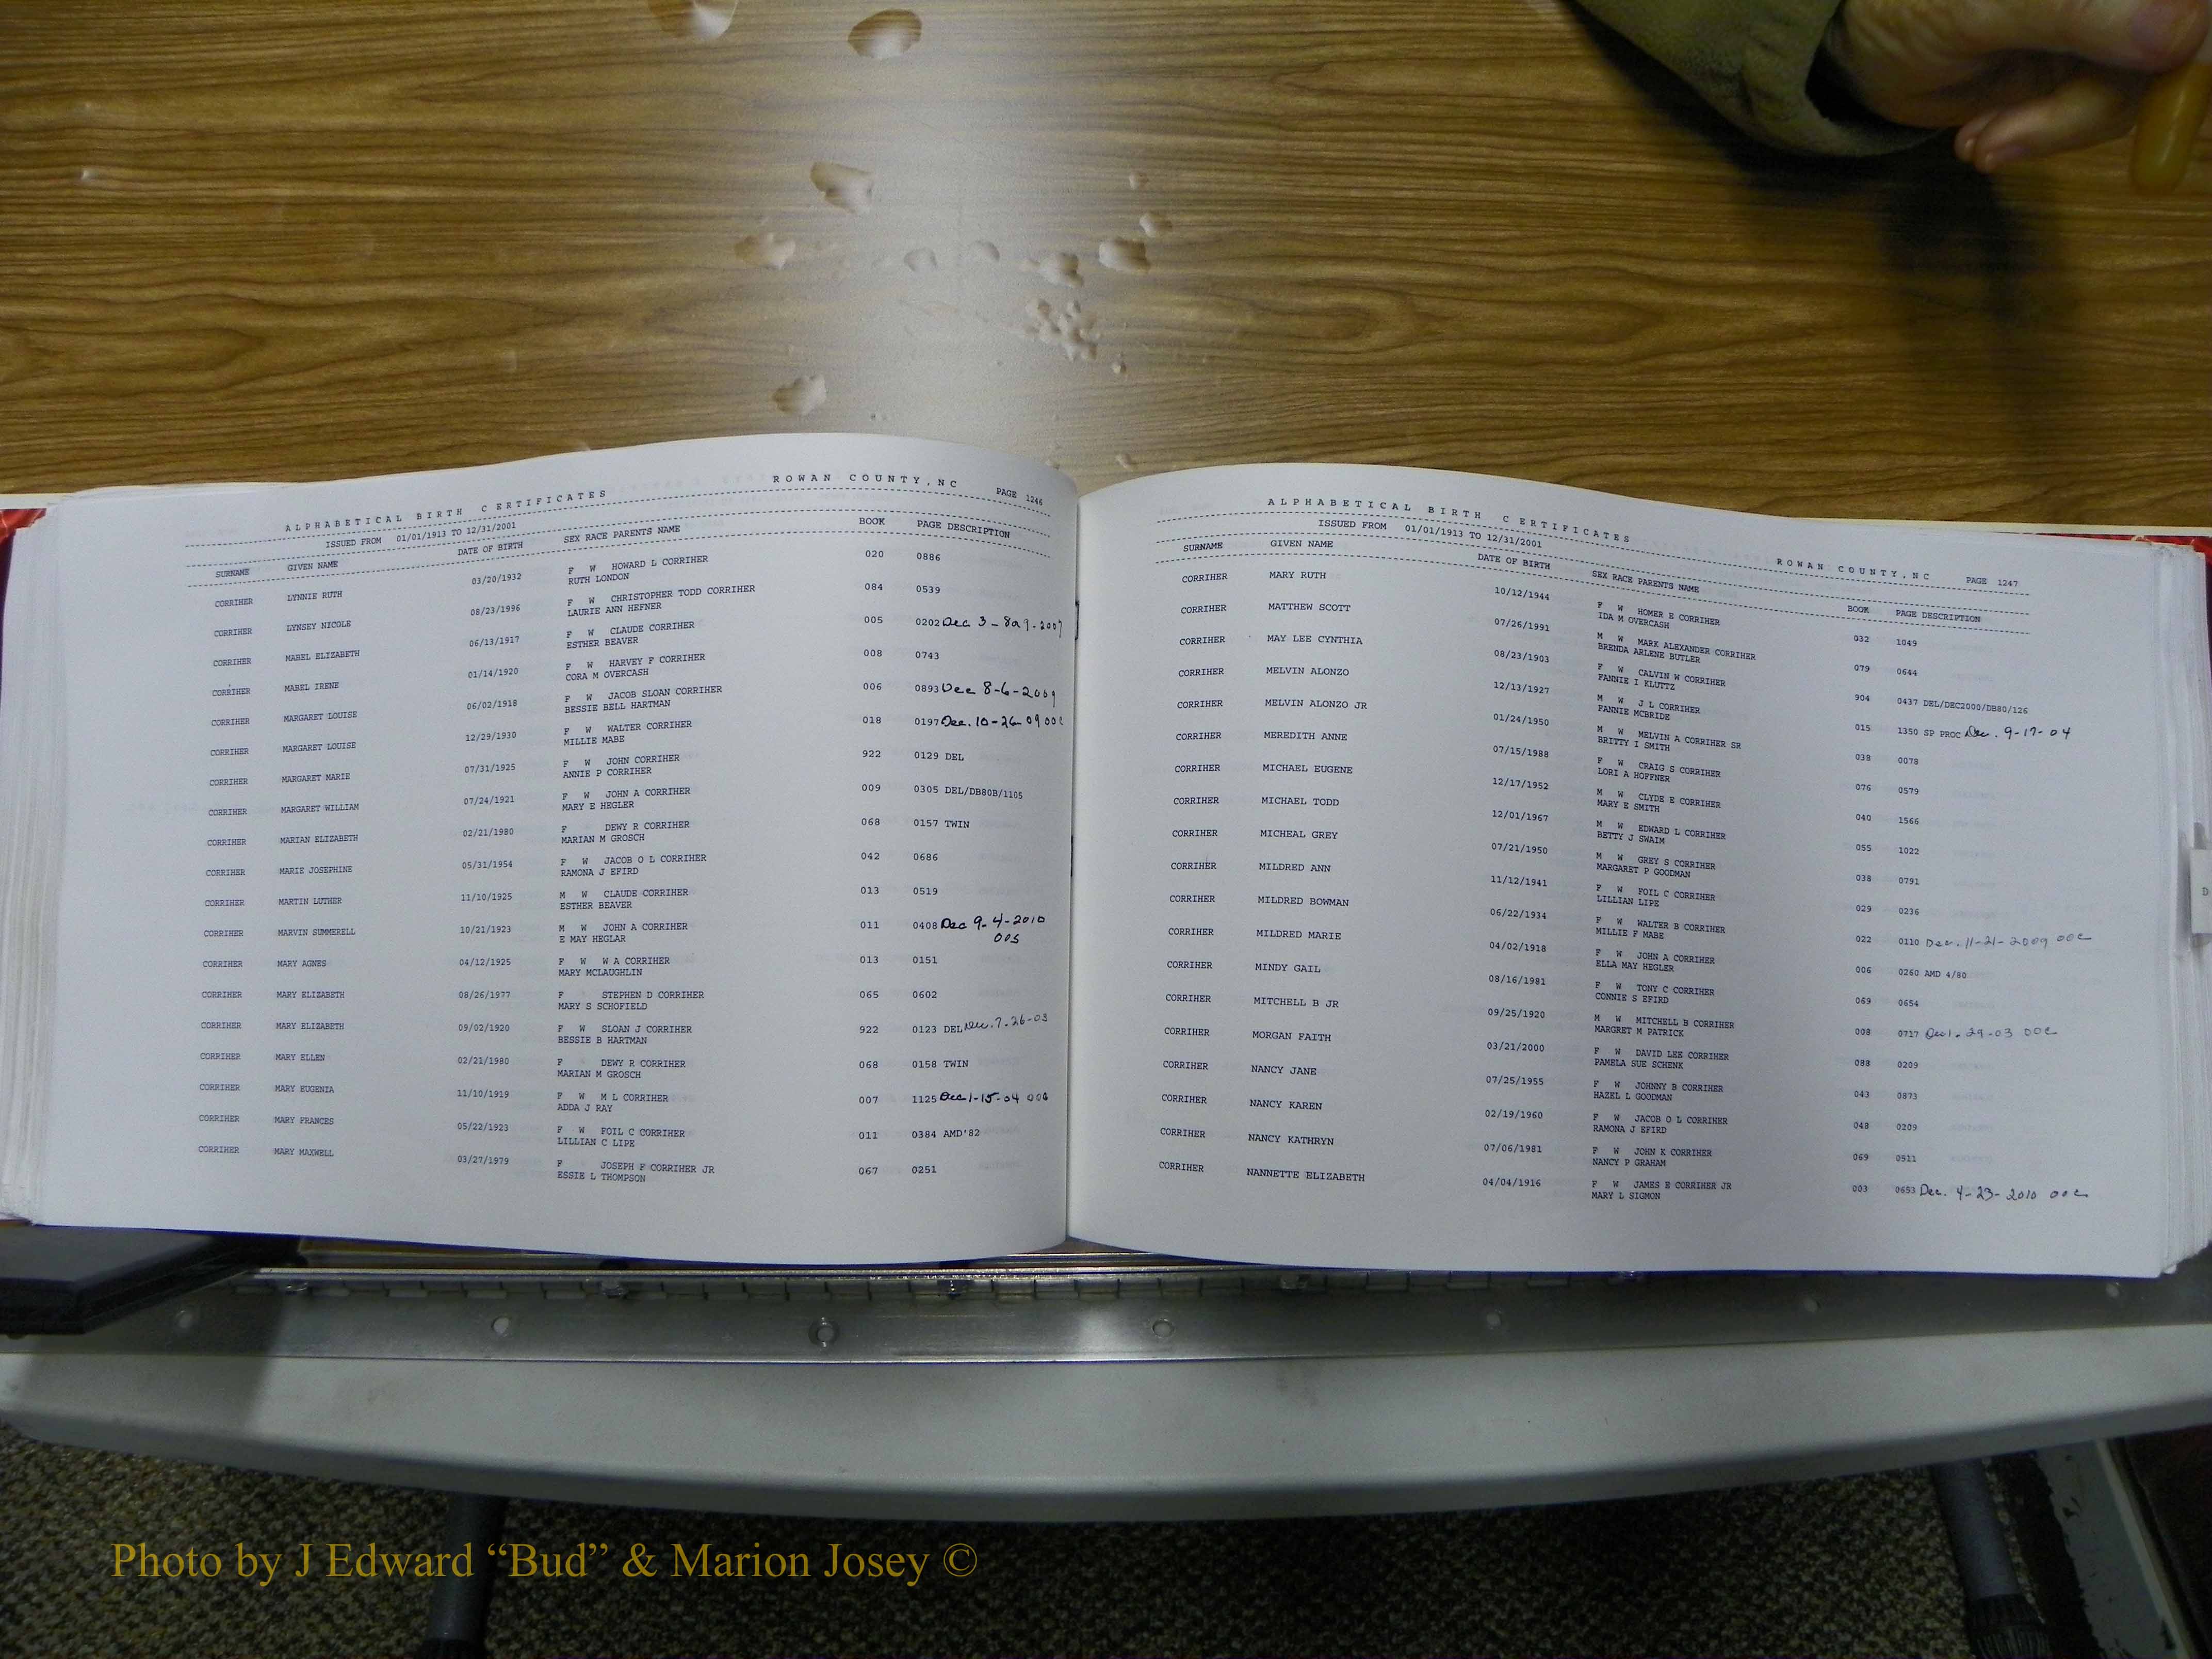 ALPHABETICAL BIRTH CERTIFICATES ROWAN COUNTY, NC PAGE 1246
ISSUED FROM 01/01/1913 TO 12/31/2001
SURNAME GIVEN NAME DATE OF BIRTH SEX RACE PARENTS NAME BOOK PAGE DESCRIPTION
CORRIHER LYNNIE RUTH 03/20/1932 F W HOWARD L CORRIHER 020 0886
RUTH LONDON
CORRIHER LYNSEY NICOLE 08/23/1996 F W CHRISTOPHER TODD CORRIHER 084 0539
LAURIE ANN HEFNER
CORRIHER MABEL ELIZABETH 06/13/1917 F W CLAUDE CORRIHER 005 0202 Dec 3-
ESTHER BEAVER
CORRIHER MABEL IRENE 01/14/1920 F W HARVEY F CORRIHER 008 0743
CORA M OVERCASH
CORRIHER MARGARET LOUISE 06/02/1918 F W JACOB SLOAN CORRIHER 006 0893 Dec 8-6-2009
BESSIE BELL HARTMAN
CORRIHER MARGARET LOUISE 12/29/1930 F W WALTER CORRIHER 018 0197 Dec. 10-26-09 00C
MILLIE MABE
CORRIHER MARGARET MARIE 07/31/1925 F W JOHN CORRIHER 922 0129 DEL
ANNIE P CORRIHER
CORRIHER MARGARET WILLIAM 07/24/1921 F W JOHN A CORRIHER 009 0305 DEL/DB80B/1105
MARY E HEGLER
CORRIHER MARIAN ELIZABETH 02/21/1980 F DEWY R CORRIHER 068 0157 TWIN
MARIAN M GROSCH
CORRIHER MARIE JOSEPHINE 05/31/1954 F W JACOB O L CORRIHER 042 0686
RAMONA J EFIRD
CORRIHER MARTIN LUTHER 11/10/1925 M W CLAUDE CORRIHER 013 0519
ESTHER BEAVER
CORRIHER MARVIN SUMMERELL 10/21/1923 M W JOHN A CORRIHER 011 0408 Dec 9-4-2010
E MAY HEGLAR 00S
CORRIHER MARY AGNES 04/12/1925 F W W A CORRIHER 013 0151
MARY MCLAUGHLIN
CORRIHER MARY ELIZABETH 08/26/1977 F STEPHEN D CORRIHER 065 0602
MARY S SCHOFIELD
CORRIHER MARY ELIZABETH 09/02/1920 F W SLOAN J CORRIHER 922 0123 DEL Dec. 7-26-03
BESSIE B HARTMAN
CORRIHER MARY ELLEN 02/21/1980 F DEWY R CORRIHER 068 0158 TWIN
MARIAN M GROSCH
CORRIHER MARY EUGENIA 11/10/1919 F W M L CORRIHER 007 1125 Dec 1-15-04 00C
ADDA J RAY
CORRIHER MARY FRANCES 05/22/1923 F W FOIL C CORRIHER 011 0384 AMD'82
LILLIAN C LIPE
CORRIHER MARY MAXWELL 03/27/1979 F JOSEPH F CORRIHER JR 067 0251
ESSIE L THOMPSON
ALPHABETICAL BIRTH CERTIFICATES ROWAN COUNTY, NC PAGE 1247
ISSUED FROM 01/01/1913 TO 12/31/2001
SURNAME GIVEN NAME DATE OF BIRTH SEX RACE PARENTS NAME BOOK PAGE DESCRIPTION
CORRIHER MARY RUTH 10/12/1944 F W HOMER E CORRIHER 032 1049
IDA M OVERCASH
CORRIHER MATTHEW SCOTT 07/26/1991 M W MARK ALEXANDER CORRIHER 079 0644
BRENDA ARLENE BUTLER
CORRIHER MAY LEE CYNTHIA 08/23/1903 F W CALVIN W CORRIHER 904 0437 DEL/DEC2000/DB80/126
FANNIE I KLUTTZ
CORRIHER MELVIN ALONZO 12/13/1927 M W J L CORRIHER 015 1350 SP PROC Dec. 9-17-04
FANNIE MCBRIDE
CORRIHER MELVIN ALONZO JR 01/24/1950 M W MELVIN A CORRIHER SR 038 0078
BRITTY I SMITH
CORRIHER MEREDITH ANNE 07/15/1988 F W CRAIG S CORRIHER 076 0579
LORI A HOFFNER
CORRIHER MICHAEL EUGENE 12/17/1952 M W CLYDE E CORRIHER 040 1566
MARY E SMITH
CORRIHER MICHAEL TODD 12/01/1967 M W EDWARD L CORRIHER 055 1022
BETTY J SWAIM
CORRIHER MICHEAL GREY 07/21/1950 M W GREY S CORRIHER 038 0791
MARGARET P GOODMAN
CORRIHER MILDRED ANN 11/12/1941 F W FOIL C CORRIHER 029 0236
LILLIAN LIPE
CORRIHER MILDRED BOWMAN 06/22/1934 F W WALTER B CORRIHER 022 0110 Dec. 11-21-2009 00C
MILLIE F MABE
CORRIHER MILDRED MARIE 04/02/1918 F W JOHN A CORRIHER 006 0260 AMD 4/80
ELLA MAY HEGLER
CORRIHER MINDY GAIL 08/16/1981 F W TONY C CORRIHER 069 0654
CONNIE S EFIRD
CORRIHER MITCHELL B JR 09/25/1920 M W MITCHELL B CORRIHER 008 0717 Dec 1-29-03 00C
MARGRET M PATRICK
CORRIHER MORGAN FAITH 03/21/2000 F W DAVID LEE CORRIHER 088 0209
PAMELA SUE SCHENK
CORRIHER NANCY JANE 07/25/1955 F W JOHNNY B CORRIHER 043 0873
HAZEL L GOODMAN
CORRIHER NANCY KAREN 02/19/1960 F W JACOB O L CORRIHER 048 0209
RAMONA J EFIRD
CORRIHER NANCY KATHRYN 07/06/1981 F W JOHN K CORRIHER 069 0511
NANCY P GRAHAM
CORRIHER NANNETTE ELIZABETH 04/04/1916 F W JAMES E CORRIHER JR 003 0653 Dec. 4-23-2010 00C
MARY L SIGMON
Photo by J Edward “Bud” & Marion Josey ©